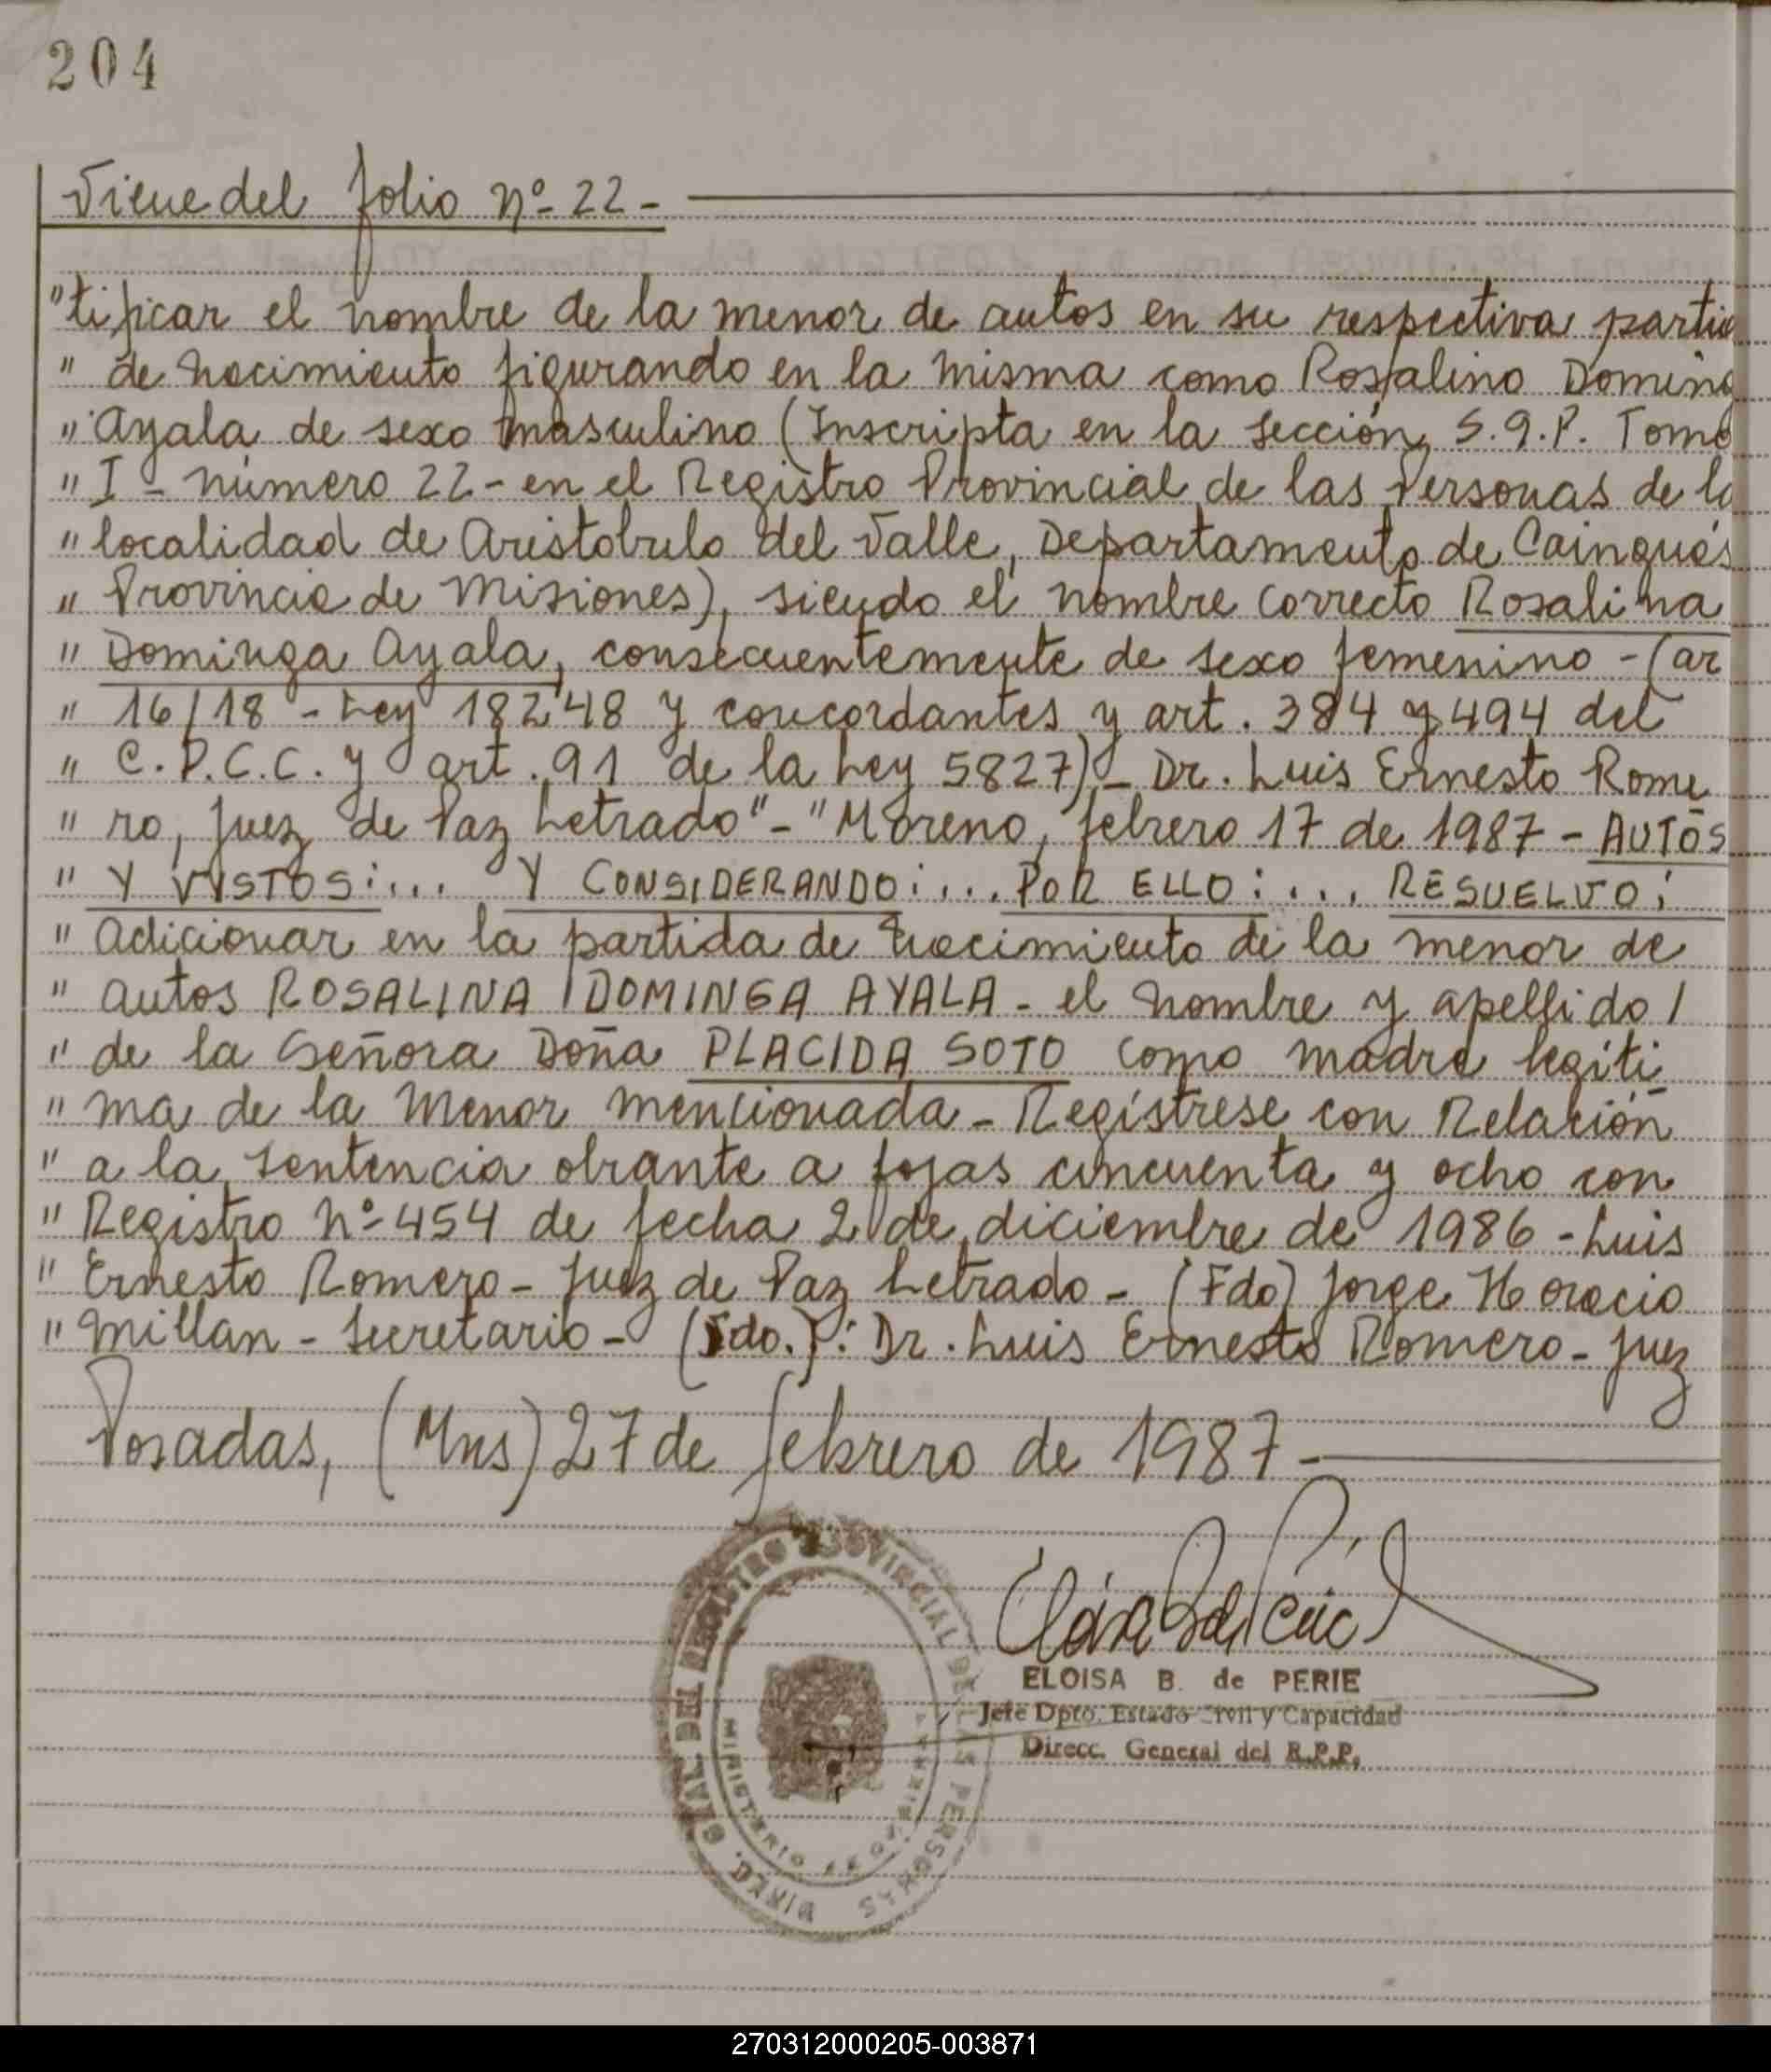 204
Viene del folio nº 22 -
"tificar el nombre de la menor de autos en su respectiva partid
" de nacimiento figurando en la misma como Rosalino Doming
" Ayala de sexo masculino (Inscripta en la sección, S.9.P. Tomo
" I - número 22 - en el Registro Provincial de las Personas de la
" localidad de Aristobulo del Valle, Departamento de Cainguás
" Provincia de Misiones), siendo el nombre correcto Rosalina
" Dominga Ayala, consecuentemente de sexo femenino - (ar
" 16/18 - Ley 18248 y concordantes y art. 384 y 494 del
" C.P.C.C. y art. 91 de la Ley 5827) - Dr. Luis Ernesto Rome
" ro, Juez de Paz Letrado" - "Moreno, febrero 17 de 1987 - AUTOS
" Y VISTOS:... Y CONSIDERANDO:... POR ELLO:... RESUELVO:
" Adicionar en la partida de nacimiento de la menor de
" autos ROSALINA DOMINGA AYALA - el nombre y apellido /
" de la Señora Doña PLACIDA SOTO como madre legíti
" ma de la menor mencionada - Regístrese con Relación
" a la sentencia obrante a fojas cincuenta y ocho con
" Registro nº 454 de fecha 2 de diciembre de 1986 - Luis
" Ernesto Romero - Juez de Paz Letrado - (Fdo) Jorge Horacio
" Millan - Secretario - (Fdo.): Dr. Luis Ernesto Romero - Juez
Posadas, (Mns) 27 de febrero de 1987 -
DIREC. GRAL. DEL REGISTRO PROVINCIAL DE LAS PERSONAS
MINISTERIO DE
ELOISA B. de PERIE
Jefe Dpto. Estado Civil y Capacidad
Direcc. General del R.P.P.
270312000205-003871